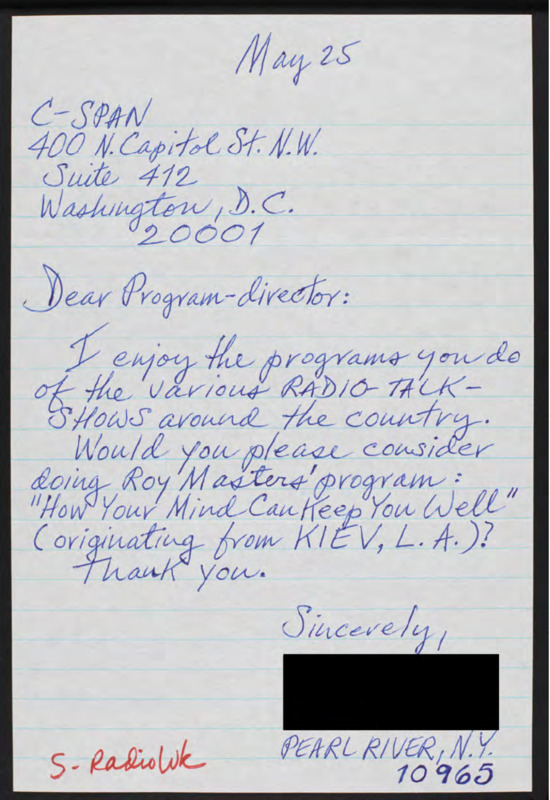 May 25
C-SPAN
400 N. Capitol St. N.W.
Suite 412
Washington, D.C.
20001
Dear Program-director:
I enjoy the programs you do
of the various RADIO TALK-
SHOWS around the country.
Would you please consider
doing Roy Masters' program:
"How Your Mind Can Keep You Well"
(originating from KIEV, L.A.)?
Thank you.
Sincerely,
PEARL RIVER, N.Y.
10965
S- RadioWk